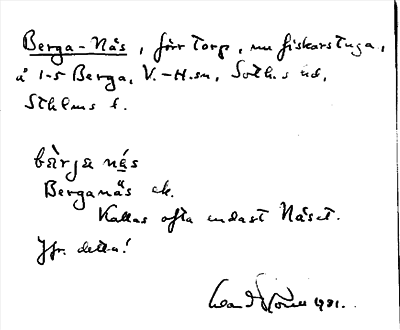 Berga-Näs, förr torp, nu fiskarstuga,
å 1-5 Berga, V.-H.sn, Soth.s hd,
Sthlms l.
bärja nä́s
Berganäs ek.
Kallas ofta endast Näset.
Jfr. detta!
1981.